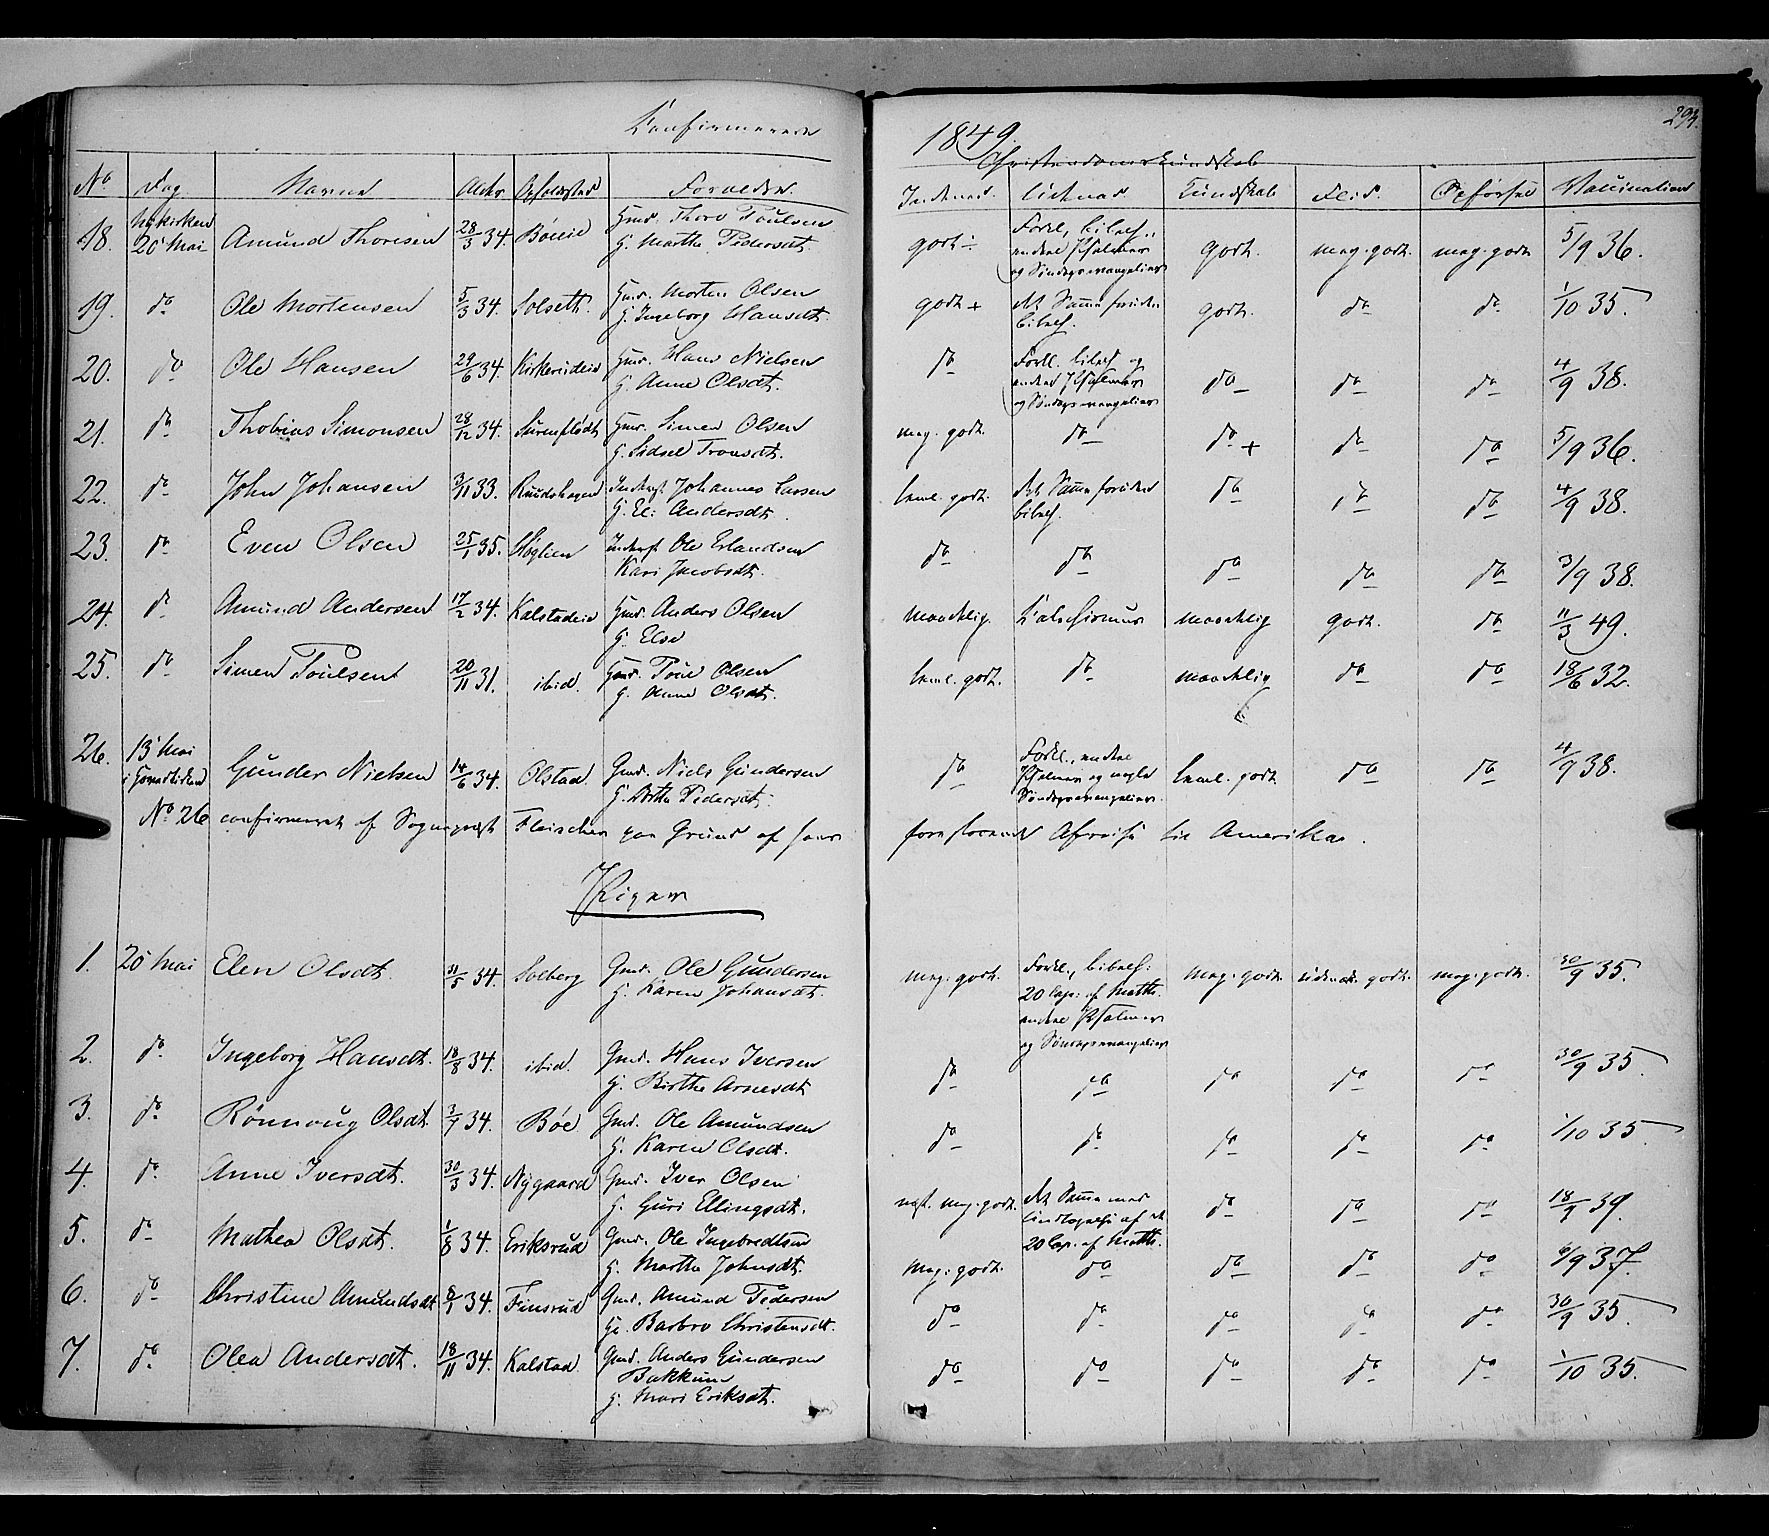 Confirmerede 1849. 293.
Christendomskundskab
No Dag Navne Alder Opholdssted Forældre Indenad. Udenad Kundskab Flid. Opførsel Vaccination
18. Nykirken 20 Mai Amund Thoresen 28/3 34. Böeeie Hmd. Thore Poulsen godt ÷ Forkl., bibelh., godt. meg. godt. meg. godt 5/9 36.
H. Marthe Pedersdt. endeel Psalmer
og Søndagsevangelier
19. do Ole Mortensen 5/3 34. Solseth. Hmd. Morten Olsen godt + det Samme foruden godt. do do 1/10 35
H. Ingeborg Hansdt. bibelh.
20. do Ole Hansen 29/6 34. Hmd. Hans Nielsen do Forkl. bibelh. og do do do 4/9 38.
H. Anne Olsdt. endeel Psalmer
og Søndagsevangelier
21. do Thobias Simonsen 28/12 34. Hmd. Simen Olsen meg. godt. do do + do do 5/9 36.
H. Sidsel Tronsdt.
22. do John Johansen 3/11 33. Ruudshagen Inderst Johannes Larsen teml. godt. det Samme foruden do do do 4/9 38.
H. Eli Andersdt. bibelh.
23. do Even Olsen 25/1 35. Høglien Inderst Ole Erlandsen do do do do do 3/9 38.
Kari Jacobsdt.
24. do Amund Andersen 17/2 34. Kalstadeie Hmd. Anders Olsen maadelig. Catechismus maadelig godt. do 11/3 49.
H. Else
25. do Simen Poulsen 20/11 31. ibid. Hmd. Poul Olsen teml. godt. do maadelig do do 18/6 32.
H. Anne Olsdt.
26. 13 Mai Gunder Nielsen 14/6 34. Olstad. Gmd. Niels Gundersen do Forkl., endeel teml. godt do do 4/9 38.
i Hovedkirken H. Berthe Pedersdt. Psalmer og nogle
Søndagsevangelier.
No 26 confirmeret af Sognepræst Fleischer paa Grund af hans forestaaende Afreise til Amerika.
Piger
1. 20 Mai Elen Olsdt. 31/5 34. Solberg Gmd. Ole Gundersen meg. godt. Forkl., bibelh. meg. godt. godt. meg. godt. 30/9 35.
H. Karen Johansdt. 20 Cap. af Matth.
endeel Psalmer
og Søndagsevangelier
2. do Ingeborg Hansdt. 18/8 34. ibid. Gmd. Hans Iversen do do do do do 30/9 35.
H. Birthe Arnesdt
3. do Rönnoug Olsdt. 3/7 34. Böe Gmd. Ole Amundsen do do do do do 1/10 35
H. Karen Olsdt.
4. do Anne Iversdt. 30/3 34. Nygaard Gmd. Iver Olsen næst. meg. godt. det Samme med do do do 18/9 39.
H. Guri Ellingsdt. Undtagelse af de
5. do Mathea Olsdt. 1/8 34. Eriksrud Gmd. Ole Ingebredtsen 20 Cap. af Matth.
H. Marthe Johnsdt. meg. godt. do do do do 6/9 37.
6. do Christine Amundsdt 8/1 34. Finsrud Gmd. Amund Pedersen do do do do do 30/9 35
H. Barbro Christensdt.
7. do Olea Andersdt. 18/11 34. Kalstad Gmd. Anders Gundersen do do do do do 1/10 35.
Bakkum
H. Mari Eriksdt.